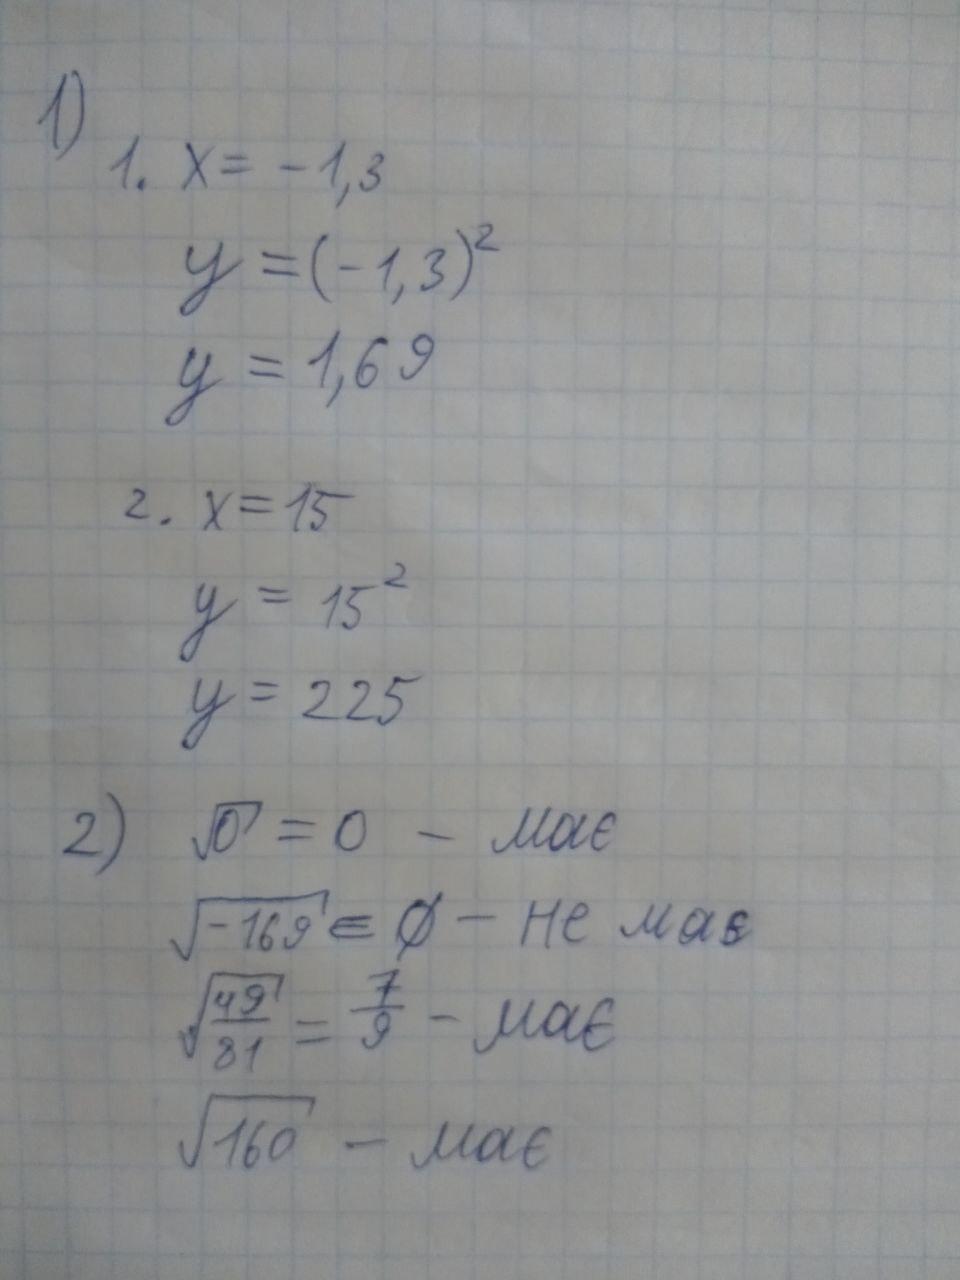 1)
1. x = -1,3
y = (-1,3)²
y = 1,69
2. x = 15
y = 15²
y = 225
2) √0 = 0 - має
√-169 = ∅ - не має
√49/81 = 7/9 - має
√160 - має